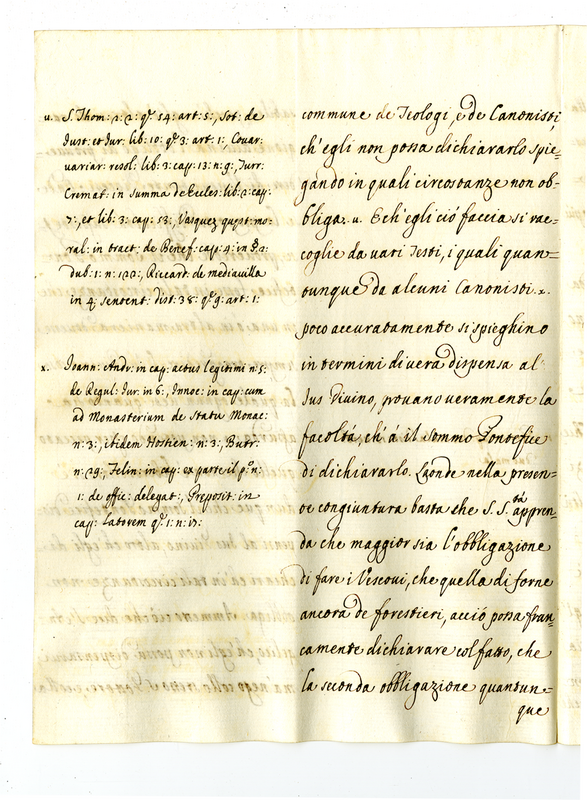 u. S. Thom: 2: 2: q: 54: art: 5:, Sot: de
Iust: et Jur: lib: 10: q: 3: art: 1:, Couar:
variar: resol: lib: 3: cap: 13: n: 9:, Turr:
Cremat: in summa de Eccles: lib: 2: cap:
7:, et lib: 3: cap: 53:, Vasquez opusc: mo=
ral: in tract: de Benef: cap: 4: in
dub: 1: n: 122:, Riccard: de mediavilla
in 4: sentent: dist: 38: q: 9: art: 1:
x. Ioann: Andr: in cap: actus legitimi n: 5:
de Regul: Iur: in 6:, Innoc: in cap: cum
ad Monasterium de Statu Monac:
n: 3:, ibidem Hostien: n: 3:, Butr:
n: 29:, Felin: in cap: ex parte il p.º n:
1: de offic: delegat:, Preposit: in
cap: Latorem q: 1: n:
commune de Teologi, e de Canonisti,
ch'egli non possa dichiararlo spie=
gando in quali circostanze non ob=
bliga. u. E ch'egli ciò faccia si rac=
coglie da vari Testi, i quali quan=
tunque da alcuni Canonisti .x.
poco accuratamente si spieghino
in termini di vera dispensa al
Jus Divino, prouano veramente la
facoltà, ch'à il sommo Pontefice
di dichiararlo. Laonde nella presen=
te congiuntura basta che S. S.tà appren=
da che maggior sia l'obbligazione
di fare i Vescovi, che quella di farne
ancora de forestieri, acciò possa fran=
camente dichiarare col fatto, che
la seconda obbligazione quantun=
que